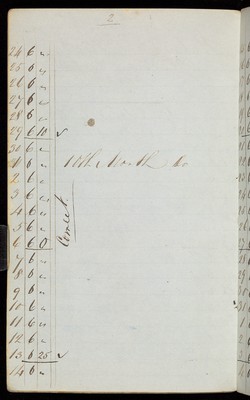 2
24 6 "
25 6 "
26 6 "
27 6 "
28 6 "
29 6 10 ✓
30 6 "
1 6 " 10th Month
2 6 "
3 6 "
4 6 "
5 6 "
6 6 0
7 6 "
8 6 "
9 6 "
10 6 "
11 6 "
12 6 "
13 6 25 ✓
14 6 "